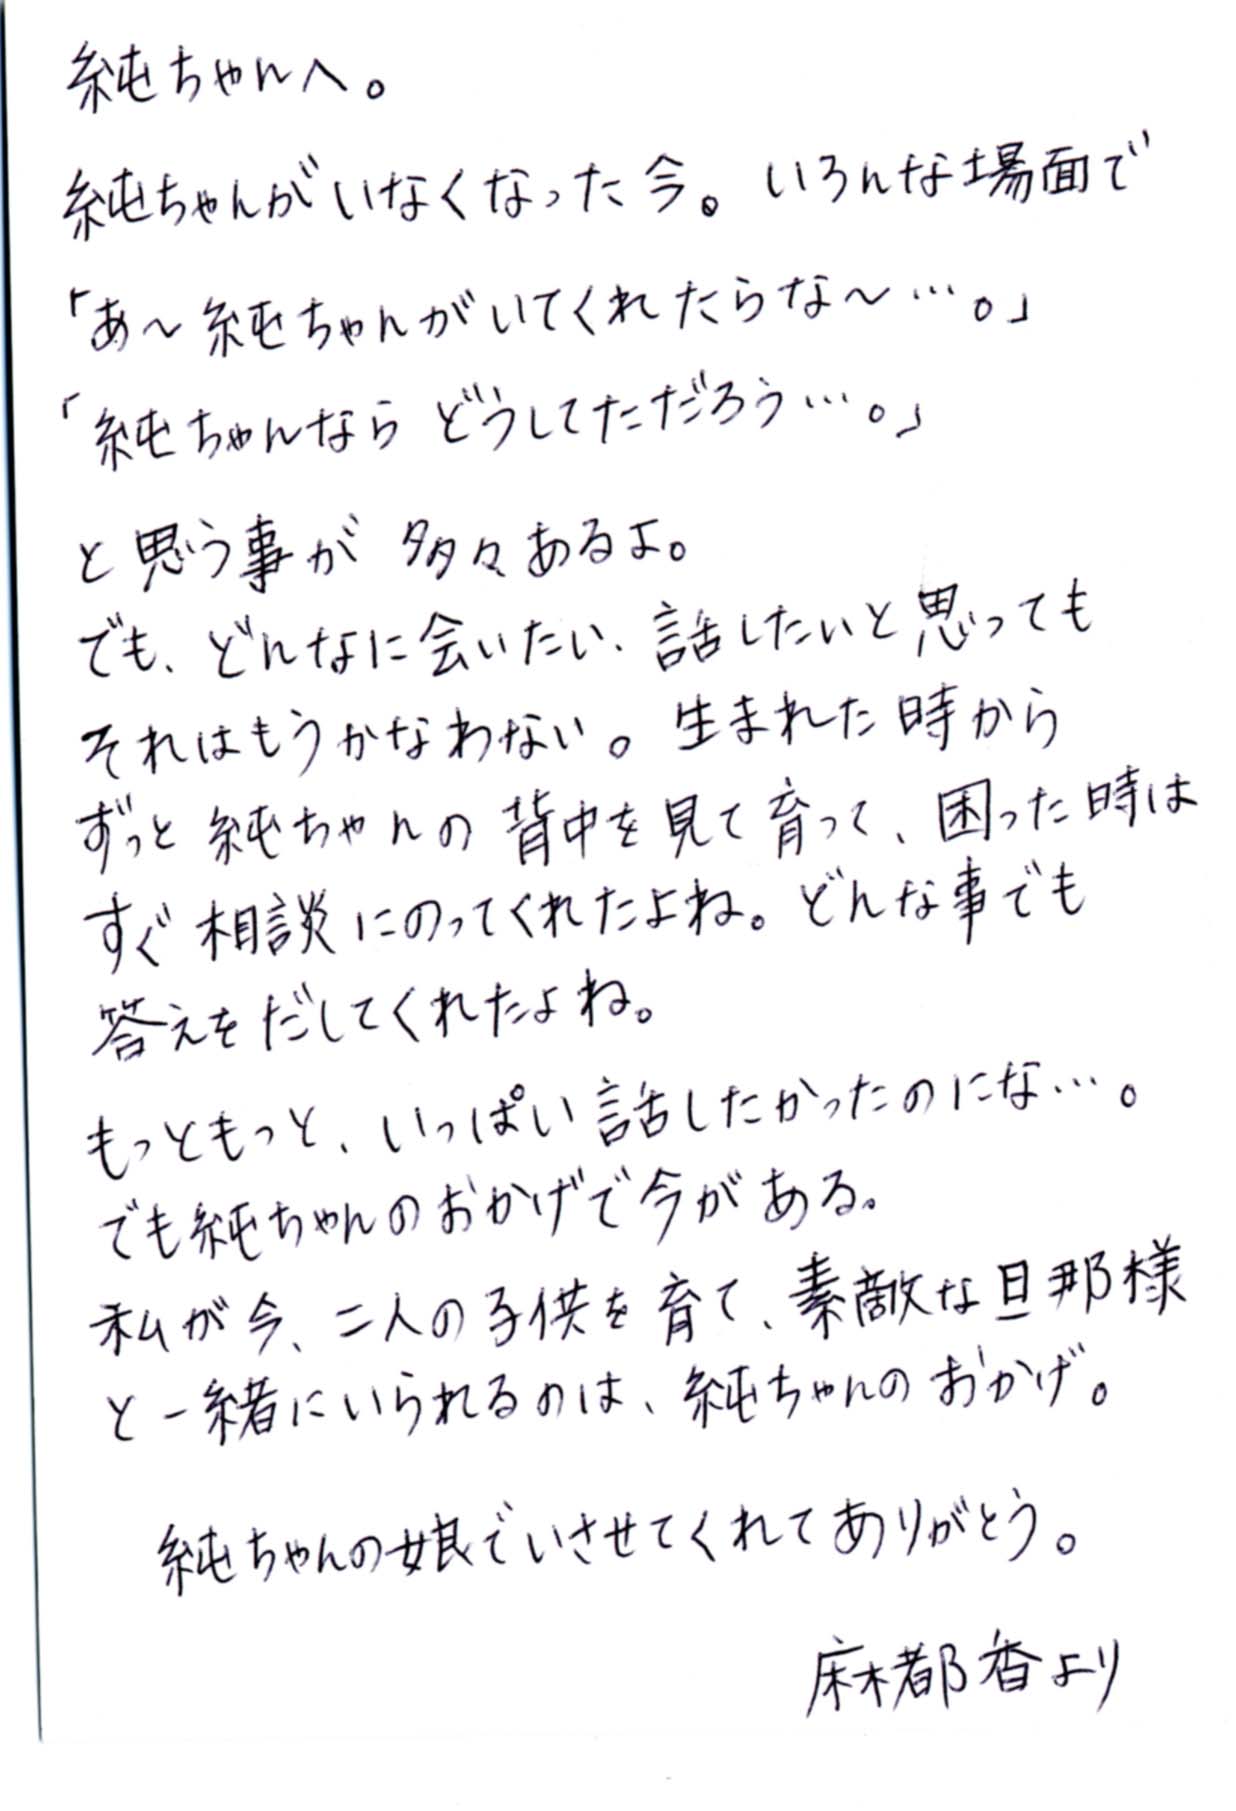 純ちゃんへ。
純ちゃんがいなくなった今。いろんな場面で
「あ～純ちゃんがいてくれたらな～…。」
「純ちゃんなら どうしてただろう…。」
と思う事が 多々あるよ。
でも、どんなに会いたい、話したいと思っても
それはもうかなわない。生まれた時から
ずっと純ちゃんの背中を見て育って、困った時は
すぐ相談にのってくれたよね。どんな事でも
答えをだしてくれたよね。
もっともっと、いっぱい話したかったのにな…。
でも純ちゃんのおかげで今がある。
私が今、二人の子供を育て、素敵な旦那様
と一緒にいられるのは、純ちゃんのおかげ。
純ちゃんの娘でいさせてくれてありがとう。
麻都香より